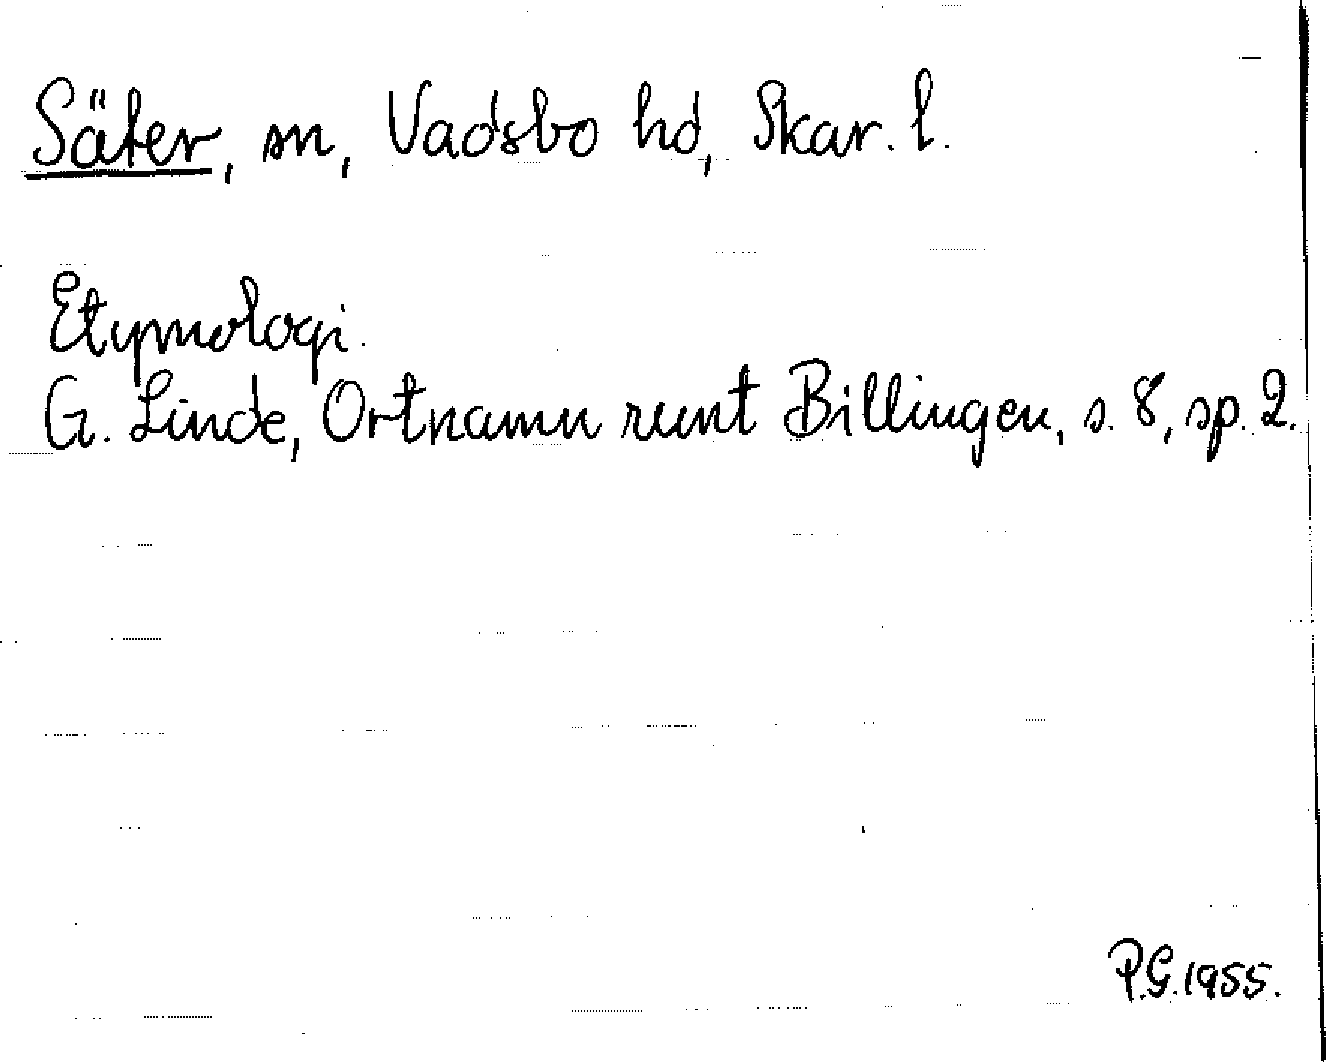 Säter, sn, Vadsbo hd, Skar. l.
Etymologi.
G. Linde, Ortnamn runt Billingen, s. 8, sp. 2.
P.G. 1955.